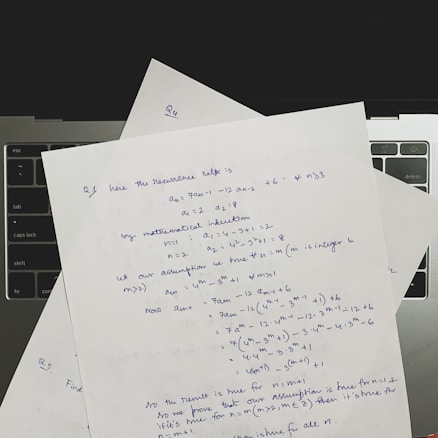 Q4
Q1 here the recurrence reltn is
aₙ = 7aₙ₋₁ - 12 aₙ₋₂ + 6 · ∀ n≥3
a₁ = 2 a₂ = 8
by mathematical induction
n=1 ; a₁ = 4-3+1 = 2
n=2 a₂ = 4²-3²+1 = 8
let our assumption be true ∀ n=m (m is integer &
m>2) aₘ = 4ᵐ-3ᵐ+1 ∀ m>1
Now aₘ₊₁ = 7aₘ - 12 aₘ₋₁ + 6
= 7aₘ - 12(4ᵐ⁻¹ - 3ᵐ⁻¹ + 1) + 6
= 7aᵐ - 12·4ᵐ⁻¹ - 12·3ᵐ⁻¹ - 12 + 6
= 7(4ᵐ - 3ᵐ + 1) - 3·4ᵐ - 4·3ᵐ - 6
= 4·4ᵐ - 3·3ᵐ + 1
= 4⁽ᵐ⁺¹⁾ - 3⁽ᵐ⁺¹⁾ + 1
so the result is true for n=m+1
so we prove that our assumption is true for n=1,2
if it's true for n=m (m>2, m∈Z) then it's true for
n=m+1.
is true for all n.
Q5
Find
esc
tab
caps lock
shift
fn
delete